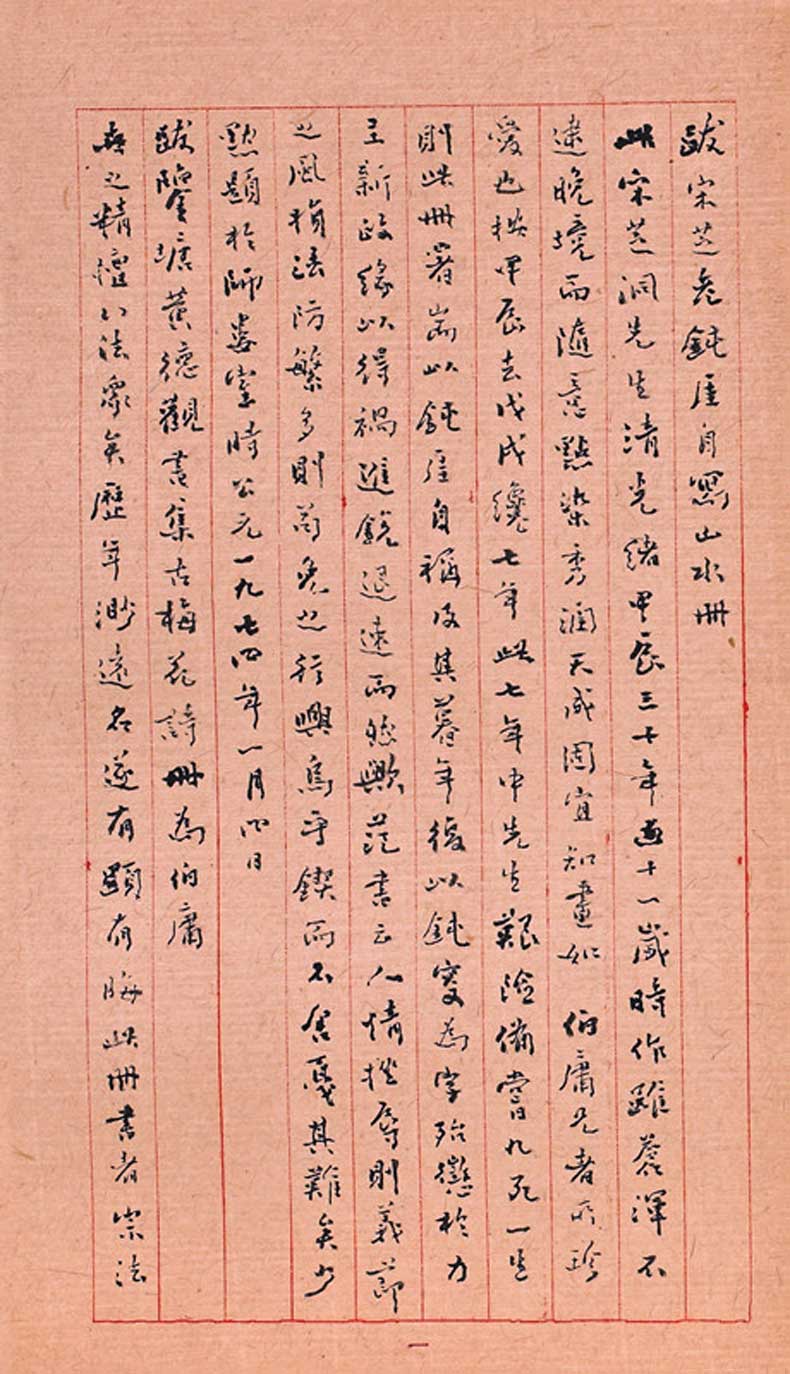 跋宋芝老鈍厓自寫山水冊
此宋芝洞先生清光緒甲辰三十年五十一歲時作雖蒼渾不
逮晚境而隨意點染秀潤天成固宜知畫如 伯庸兄者所珍
愛也按甲辰去戊戌纔七年此七年中先生艱險備嘗九死一生
則此冊署耑以鈍厓自稱及其暮年復以鈍叟為字殆懲於力
主新政緣以得禍進銳退速而然歟范書云人情挫辱則義節
之風損法防繁多則苟免之行興烏乎鍥而不舍戛其難矣少
默題於師婁堂時公元一九七四年一月四日
跋鑒塘黃德觀書集古梅花詩冊為伯庸
世之精擅八法眾矣歷年渺遠名遂有顯有晦此冊書者宗法
一